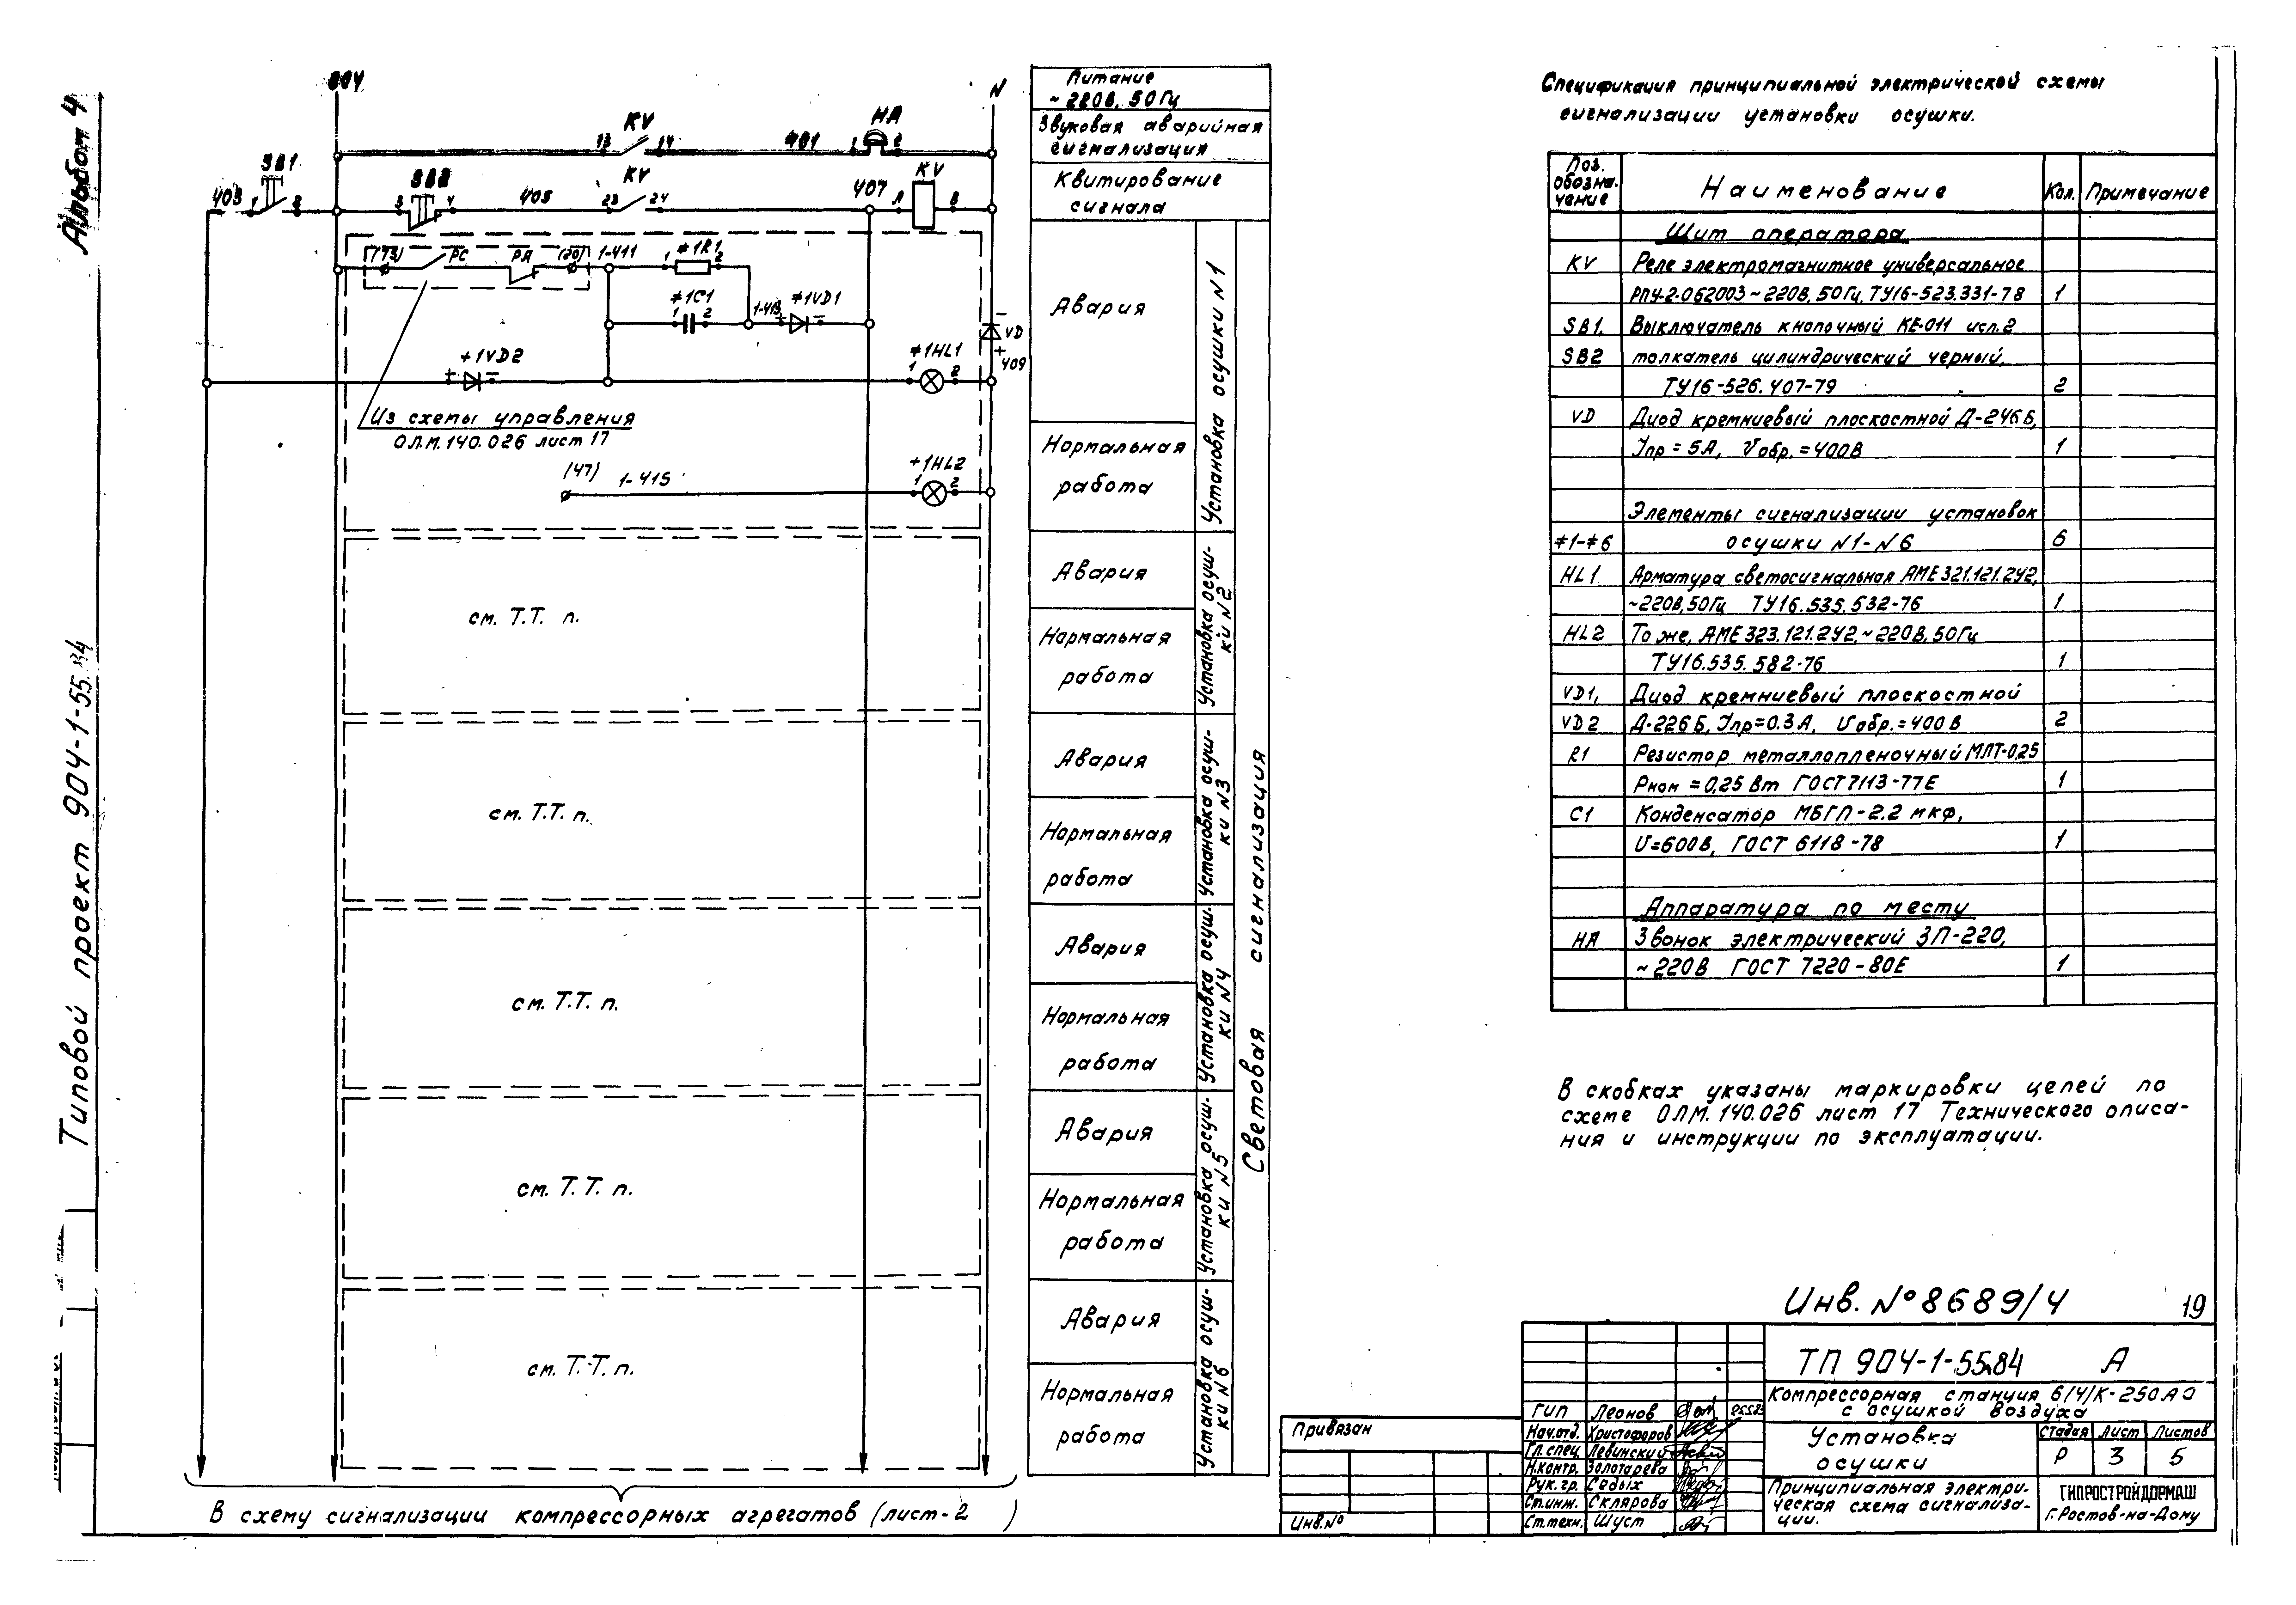 Альбом 4
Типовой проект 904-1-55.84
804
N
KV
HA
13
14
401
1
2
SB1
403
1
2
SB2
3
4
405
KV
23
24
407
A
KV
B
(73)
PC
PA
(20)
1-411
≠1R1
1
2
≠1C1
1
2
1-413
+
≠1VD1
-
-
VD
+
409
+1VD2
+
-
≠1HL1
1
2
Из схемы управления
ОЛМ.140.026 лист 17
(47)
1-415
+1HL2
1
2
см. Т.Т. п.
см. Т.Т. п.
см. Т.Т. п.
см. Т.Т. п.
см. Т.Т. п.
В схему сигнализации компрессорных агрегатов (лист-2 )
Питание
~ 220В, 50Гц
Звуковая аварийная
сигнализация
Квитирование
сигнала
Авария
Нормальная
работа
Установка осушки N1
Авария
Нормальная
работа
Установка осуш-
ки N2
Авария
Нормальная
работа
Установка осуш-
ки N3
Авария
Нормальная
работа
Установка осуш-
ки N4
Авария
Нормальная
работа
Установка осуш-
ки N5
Авария
Нормальная
работа
Установка осуш-
ки N6
Световая сигнализация
Спецификация принципиальной электрической схемы
сигнализации установки осушки.
Поз. обозна- чение
Наименование
Кол.
Примечание
Щит оператора
KV Реле электромагнитное универсальное
РПУ-2-062003 ~ 220В, 50Гц, ТУ16-523.331-78 1
SB1, Выключатель кнопочный КЕ-011 исп.2
SB2 толкатель цилиндрический черный,
ТУ16-526.407-79 2
VD Диод кремниевый плоскостной Д-246Б,
Iпр = 5А, Uобр. = 400В 1
Элементы сигнализации установок
≠1-≠6 осушки N1-N6 6
HL1 Арматура светосигнальная АМЕ 321.121.2У2,
~220В,50Гц ТУ16.535.532-76 1
HL2 То же, АМЕ 323.121.2У2, ~ 220В, 50Гц
ТУ16.535.582-76 1
VD1, Диод кремниевый плоскостной
VD2 Д-226Б, Iпр=0.3А, Uобр.=400В 2
R1 Резистор металлопленочный МЛТ-0,25
Рном = 0,25 Вт ГОСТ 7113-77Е 1
C1 Конденсатор МБГП-2.2 мкф,
U=600В, ГОСТ 6118-78 1
Аппаратура по месту
HA Звонок электрический ЗП-220,
~ 220В ГОСТ 7220-80Е 1
В скобках указаны маркировки цепей по
схеме ОЛМ.140.026 лист 17 Технического описа-
ния и инструкции по эксплуатации.
Инв. № 8689/4
19
ТП 904-1-55.84 А
Компрессорная станция 6/4/К-250А0
с осушкой воздуха
Установка
осушки
Стадия Лист Листов
Р 3 5
Принципиальная электри-
ческая схема сигнализа-
ции.
ГИПРОСТРОЙДОРМАШ
г. Ростов-на-Дону
ГИП Леонов
Нач.отд. Христофоров
Гл.спец. Левинский
Н.контр. Золотарева
Рук. гр. Седых
Ст.инж. Склярова
Ст.техн. Шуст
Привязан
Инв.№